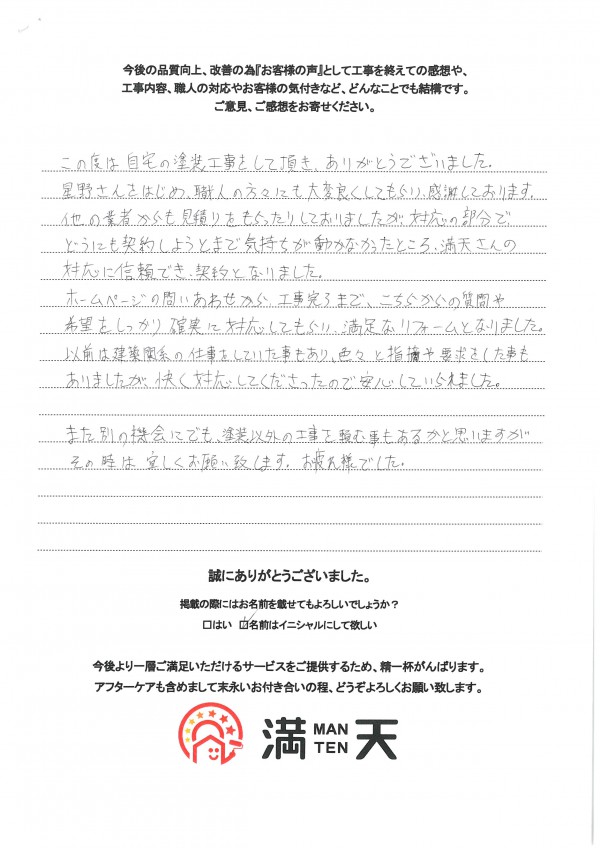 今後の品質向上、改善の為『お客様の声』として工事を終えての感想や、
工事内容、職人の対応やお客様の気付きなど、どんなことでも結構です。
ご意見、ご感想をお寄せください。
この度は自宅の塗装工事をして頂き、ありがとうございました。
星野さんをはじめ、職人の方々にも大変良くしてもらい、感謝しております。
他の業者からも見積りをもらったりしておりましたが、対応の部分で、
どうにも契約しようとまで気持ちが動かなかったところ、満天さんの
対応に信頼でき、契約となりました。
ホームページの問いあわせから、工事完了まで、こちらからの質問や
希望をしっかり確実に対応してもらい、満足なリフォームとなりました。
以前は建築関系の仕事をしていた事もあり、色々と指摘や要求をした事も
ありましたが、快く対応してくださったので安心していられました。
また別の機会にでも、塗装以外の工事を頼む事もあるかと思いますが
その時は宜しくお願い致します。お疲れ様でした。
誠にありがとうございました。
掲載の際にはお名前を載せてもよろしいでしょうか？
□はい ☑名前はイニシャルにして欲しい
今後より一層ご満足いただけるサービスをご提供するため、精一杯がんばります。
アフターケアも含めまして末永いお付き合いの程、どうぞよろしくお願い致します。
満 MAN TEN 天